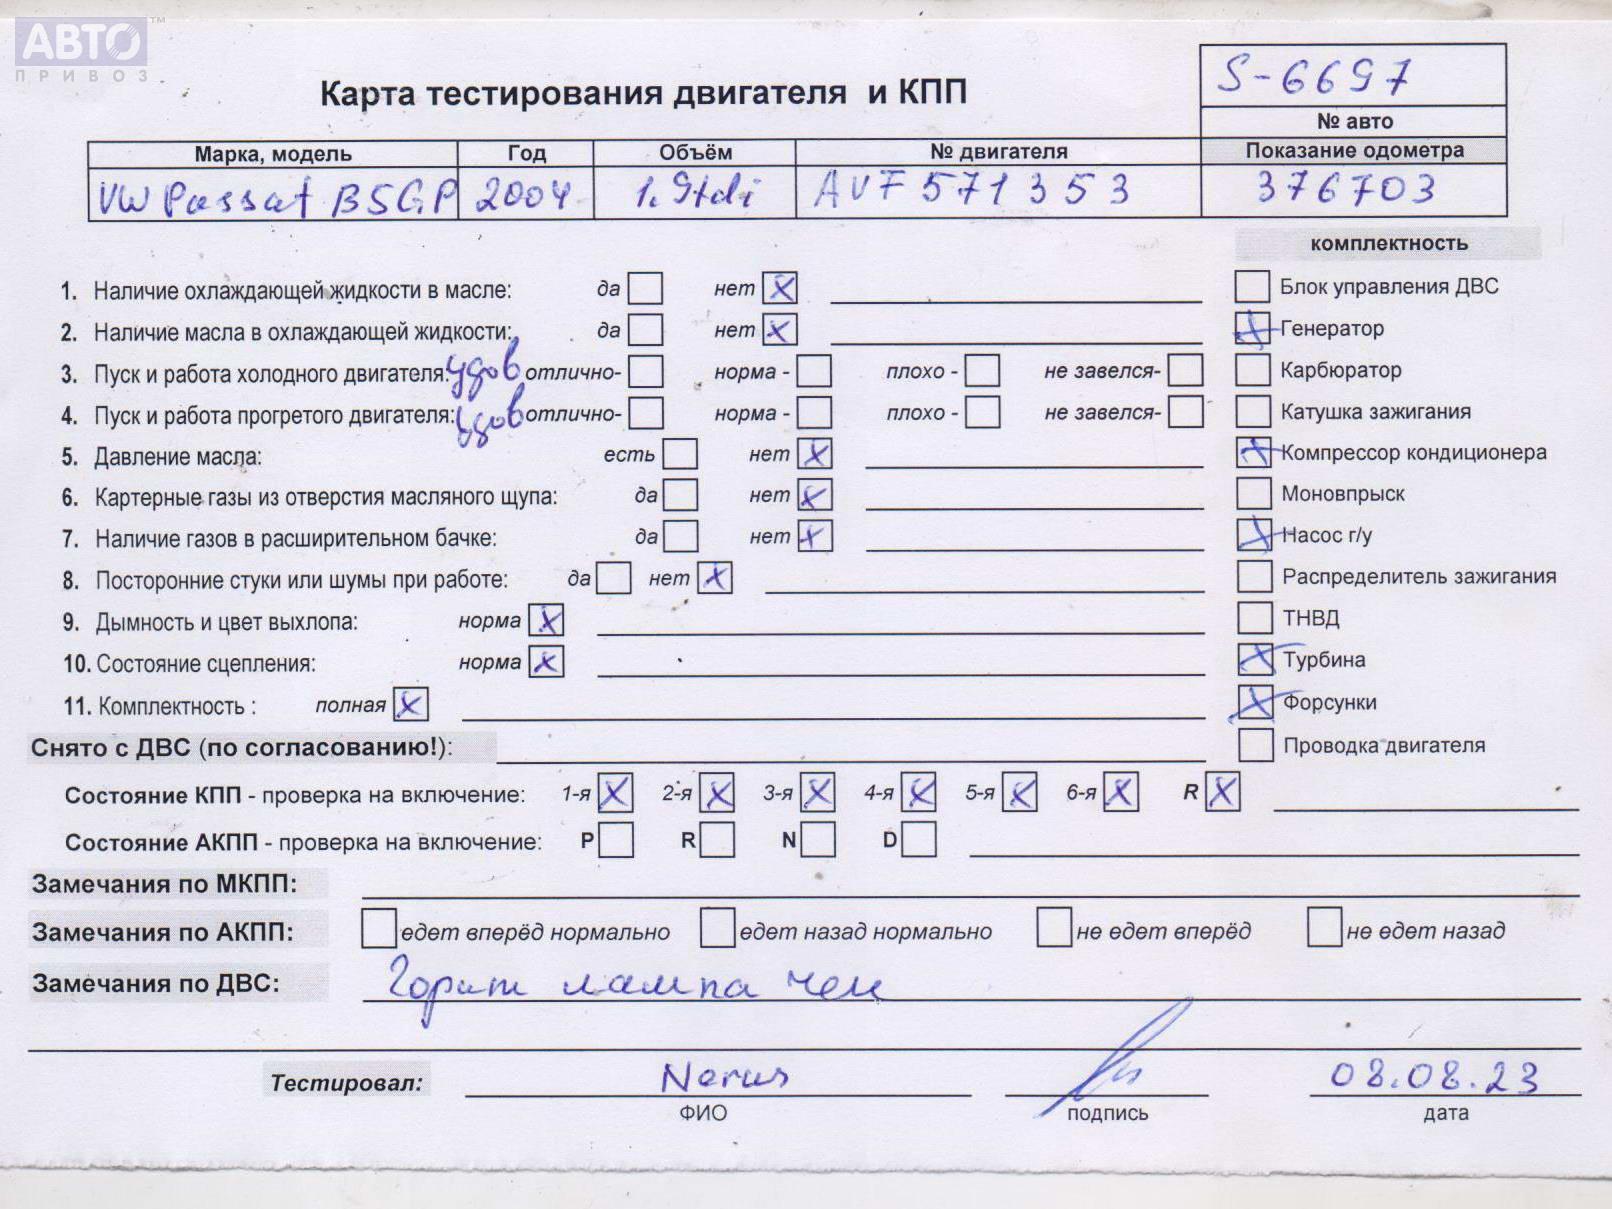 АВТО™
ПРИВОЗ
S-6697
Карта тестирования двигателя и КПП
№ авто
Марка, модель Год Объём № двигателя Показание одометра
VW Passat B5GP 2004 1.9tdi AVF571353 376703
комплектность
1. Наличие охлаждающей жидкости в масле: да нет X Блок управления ДВС
2. Наличие масла в охлаждающей жидкости: да нет X X Генератор
3. Пуск и работа холодного двигателя: удов отлично- норма - плохо - не завелся- Карбюратор
4. Пуск и работа прогретого двигателя: удов отлично- норма - плохо - не завелся- Катушка зажигания
5. Давление масла: есть нет X X Компрессор кондиционера
6. Картерные газы из отверстия масляного щупа: да нет X Моновпрыск
7. Наличие газов в расширительном бачке: да нет X X Насос г/у
8. Посторонние стуки или шумы при работе: да нет X Распределитель зажигания
9. Дымность и цвет выхлопа: норма X ТНВД
10. Состояние сцепления: норма X X Турбина
11. Комплектность : полная X X Форсунки
Снято с ДВС (по согласованию!): Проводка двигателя
Состояние КПП - проверка на включение: 1-я X 2-я X 3-я X 4-я X 5-я X 6-я X R X
Состояние АКПП - проверка на включение: P R N D
Замечания по МКПП:
Замечания по АКПП: едет вперёд нормально едет назад нормально не едет вперёд не едет назад
Замечания по ДВС: Горит лампа чек
Тестировал: 08.08.23
ФИО подпись дата